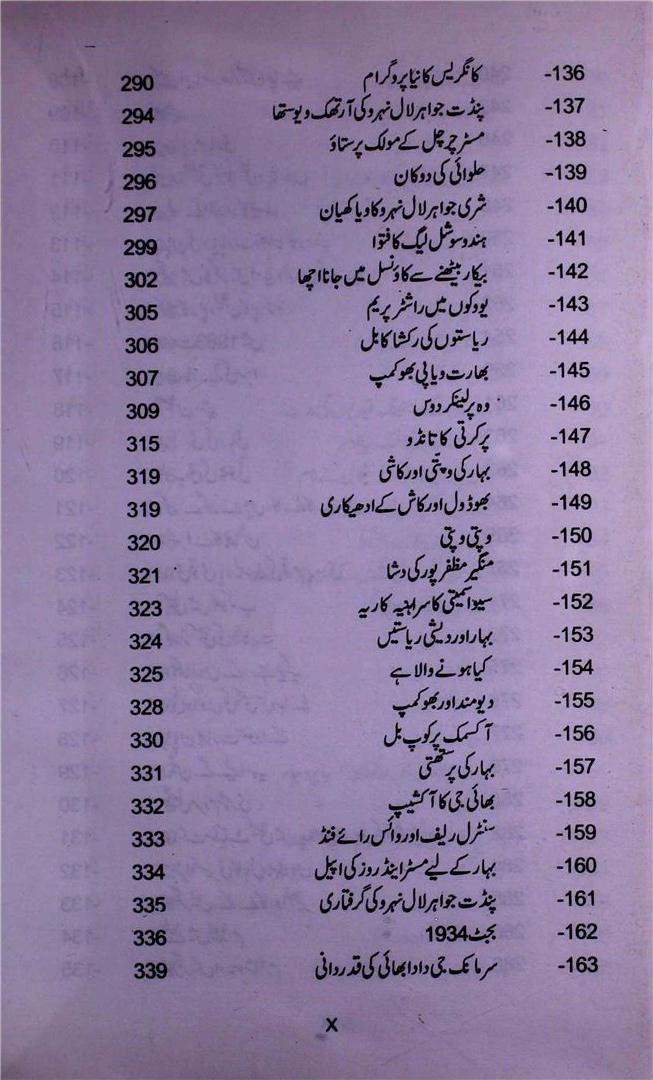 136- کانگریس کا نیا پروگرام 290
137- پنڈت جواہر لال نہرو کی آرتھک ویوستھا 294
138- مسٹر چرچل کے مولک پرستاؤ 295
139- حلوائی کی دوکان 296
140- شری جواہر لال نہرو کا ویاکھیان 297
141- ہندو سوشل لیگ کا فتوا 299
142- بیکار بیٹھنے سے کاؤنسل میں جانا اچھا 302
143- یووکوں میں راشٹر پریم 305
144- ریاستوں کی رکشا کا بل 306
145- بھارت ویاپی بھوکمپ 307
146- وہ پرلینکر دوس 309
147- پرکرتی کا تانڈو 315
148- بہار کی وپتی اور کاشی 319
149- بھوڈول اور کاش کے ادھیکاری 319
150- وپتی وپتی 320
151- منگیر مظفر پور کی دشا 321
152- سیوا سمیتی کا سراہنیہ کاریہ 323
153- بہار اور دیشی ریاستیں 324
154- کیا ہونے والا ہے 325
155- ویومند اور بھوکمپ 328
156- آکسمک پرکوپ بل 330
157- بہار کی پرستھتی 331
158- بھائی جی کا آکشیپ 332
159- سنٹرل ریلیف اور وائس رائے فنڈ 333
160- بہار کے لیے مسٹر اینڈروز کی اپیل 334
161- پنڈت جواہر لال نہرو کی گرفتاری 335
162- بجٹ 1934 336
163- سر مانک جی دادا بھائی کی قدردانی 339
X